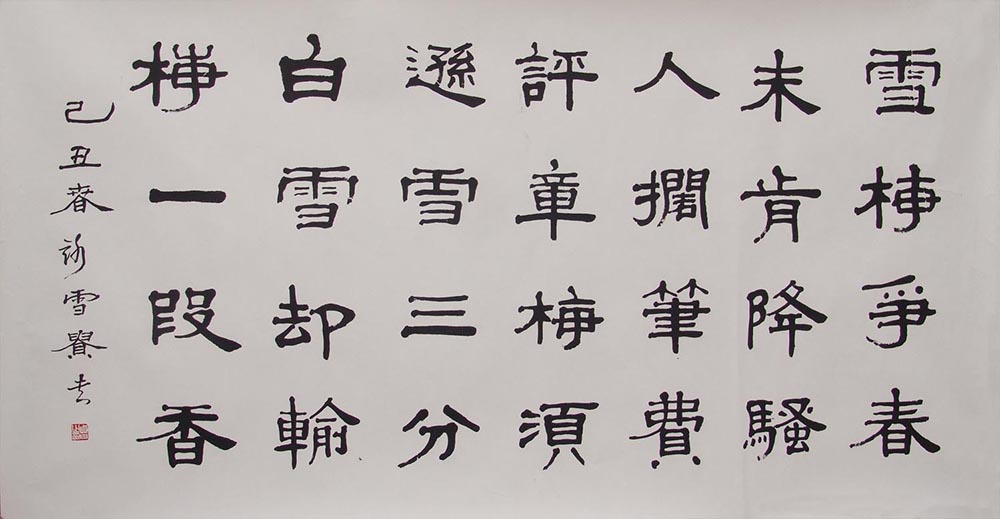 雪梅爭春
未肯降騷
人擱筆費
評章梅須
遜雪三分
白雪却輸
梅一段香
己丑春雪